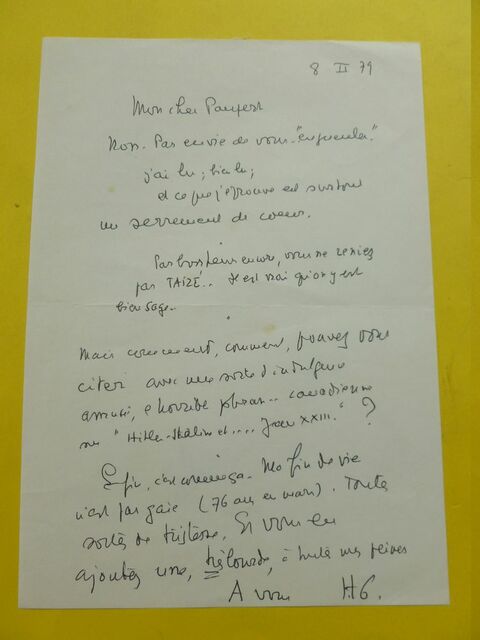 8 II 79
Mon cher Paupert
Non. Pas envie de vous "engueuler".
j'ai lu ; bien lu ;
et ce que j'éprouve est surtout
un serrement de coeur.
Pas bonheur encore, vous ne reniez
pas TAIZÉ.. Il est vrai qu'on y est
bien sage.
Mais comment, comment, pouvez vous
citer avec une sorte d'indulgence
amusée, l'horrible phrase... canadienne
sur "Hitler-Staline et.... Jean XXIII." ?
Enfin, c'est comme ça. Ma fin de vie
n'est pas gaie (76 ans en mars). Toutes
sortes de tristesse. Et vous en
ajoutez une, très lourde, à toutes mes peines
A vous HG.